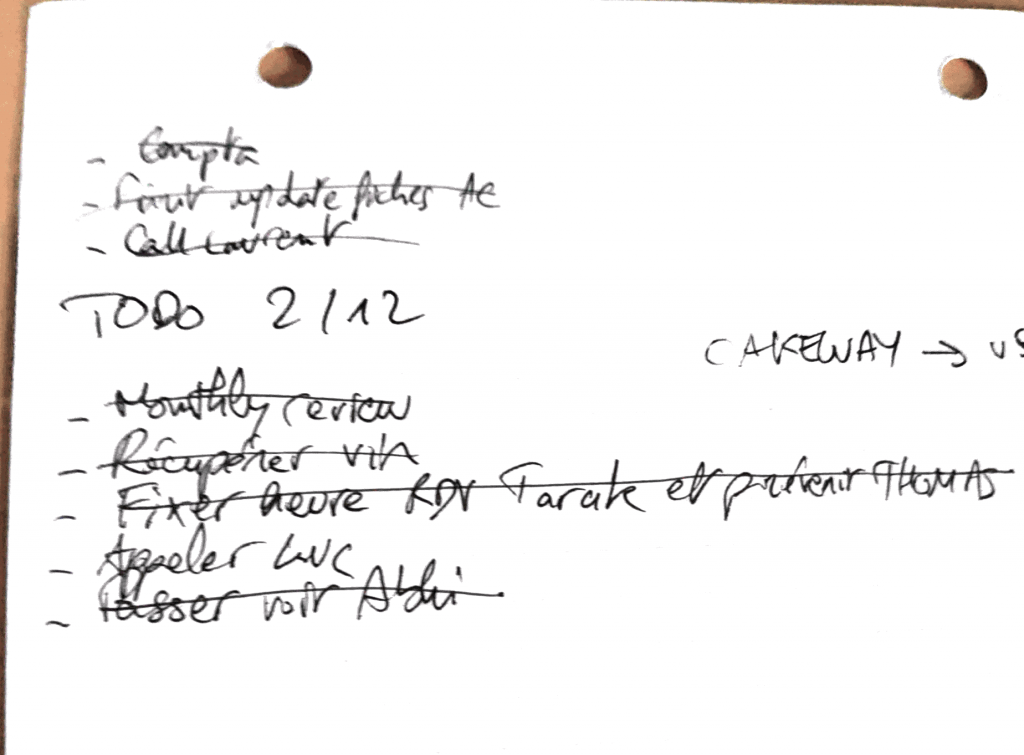 - Compta
- Finir update fiches AE
- Call Laurent
TODO 2/12
CAKEWAY → US
- Monthly review
- Récupérer
- Fixer heure RDV Tarak et prévenir THOMAS
- Appeler LUC
- Passer voir